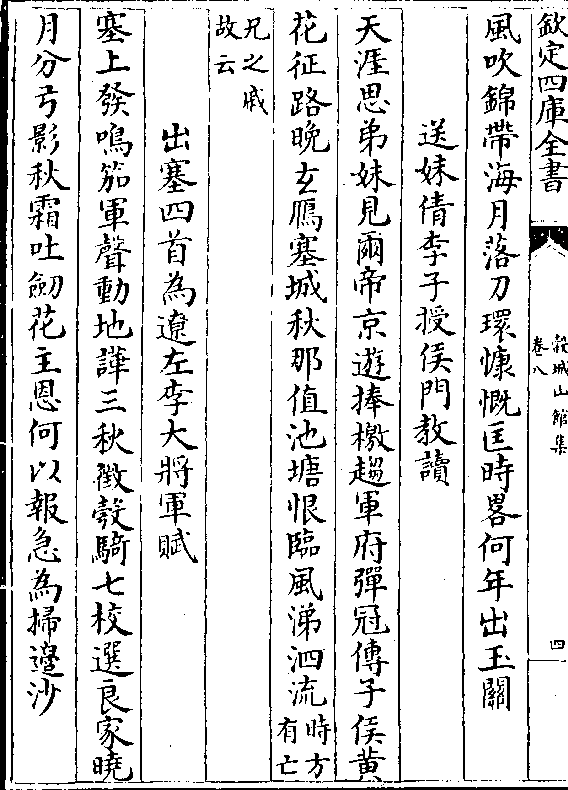 欽定四庫全書
穀城山館集
卷八
四
風吹錦帶海月落刀環慷慨匡時畧何年出玉關
送妹倩李子授侯門教讀
天涯思弟妹見爾帝京遊捧檄趨軍府彈冠傅子侯黄
花征路晚玄鴈塞城秋那值池塘恨臨風涕泗流時方
有亡
兄之戚
故云
出塞四首為遼左李大將軍賦
塞上發鳴笳軍聲動地譁三秋徵彀騎七校選良家曉
月分弓影秋霜吐劒花主恩何以報急為掃邊沙